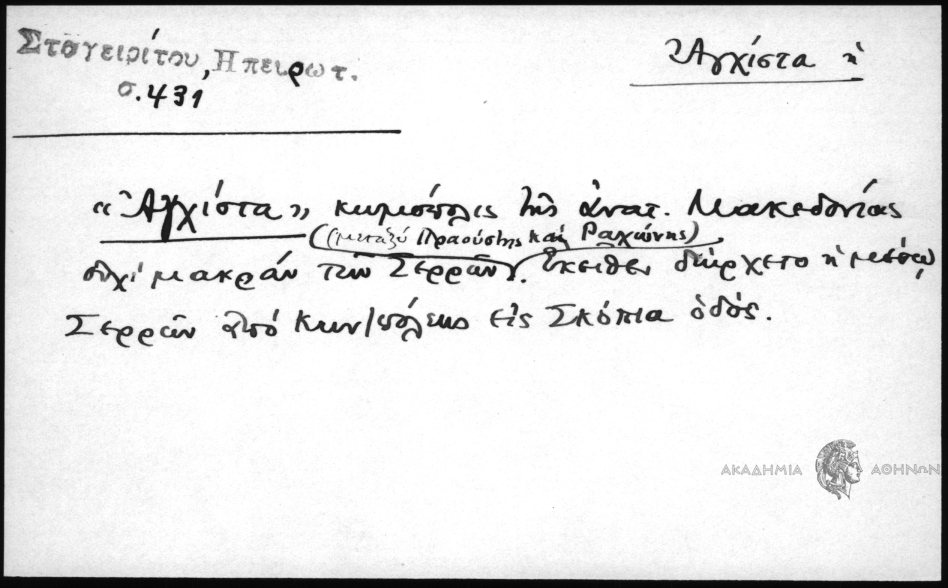 Σταγειρίτου, Ηπειρωτ.
σ. 431
Ἀγχίστα ἡ
«Ἀγχίστα», κωμόπολις τῆς ἀνατ. Μακεδονίας
(μεταξύ Πραούστης καί Ραχώνης)
οὐχί μακράν τῶν Σερρῶν. Ἐκεῖθεν διήρχετο ἡ μέσῳ
Σερρῶν ἀπό Κων/πόλεως εἰς Σκόπια ὁδός.
ΑΚΑΔΗΜΙΑ ΑΘΗΝΩΝ